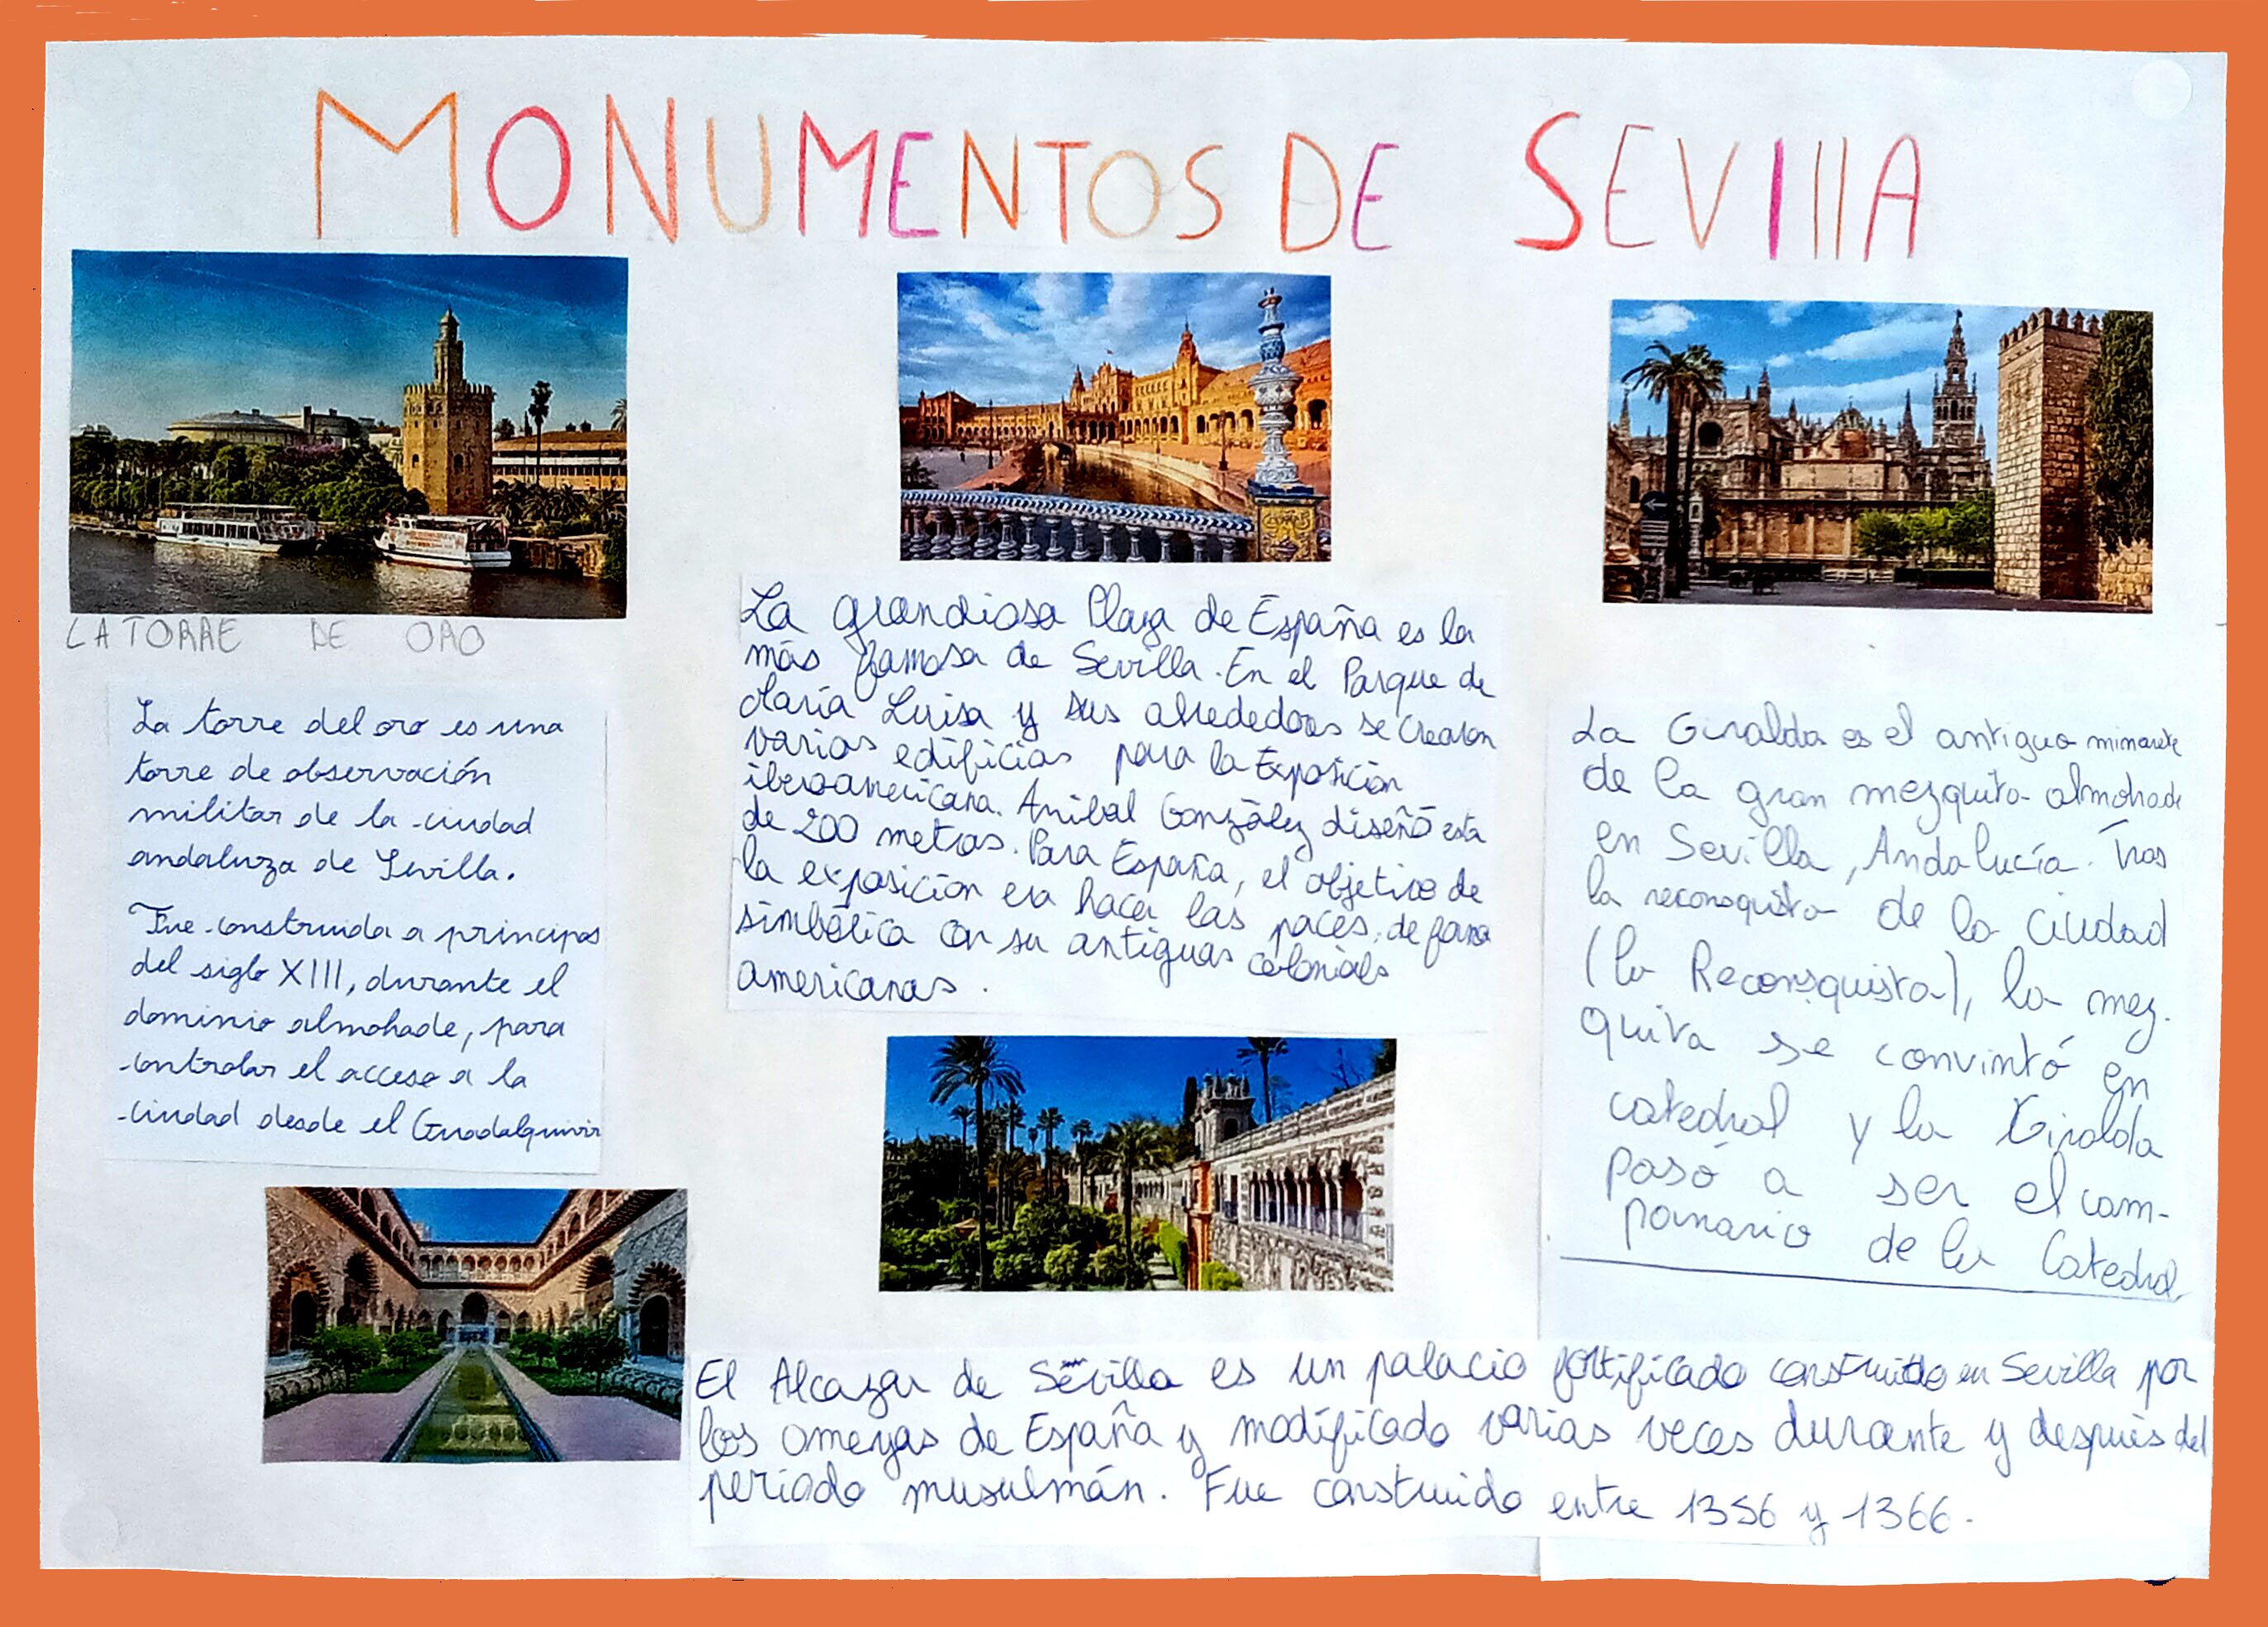 MONUMENTOS DE SEVIllA
LA TORRE DE ORO
La torre del oro es una
torre de observación
militar de la ciudad
andaluza de Sevilla.
Fue construida a principos
del siglo XIII, durante el
dominio almohade, para
controlar el acceso a la
ciudad desde el Guadalquivir
La grandiosa Plaza de España es la
más famosa de Sevilla. En el Parque de
María Luisa y sus alrededores se crearon
varios edificios para la Exposición
iberoamericana. Anibal Gonzàlez diseñó esta
de 200 metros. Para España, el objetivo de
la exposición era hacer las paces, de forma
simbólica con su antiguas colonials
americanas.
La Giralda es el antiguo minarete
de la gran mezquita almohade
en Sevilla, Andalucía. Tras
la reconsquista de la ciudad
(la Reconsquista), la mez-
quita se convirtó en
catedral y la Giralda
pasó a ser el cam-
panario de la Catedral
El Alcazar de Sevilla es un palacio fortificado construido en Sevilla por
los omeyas de España y modificado varias veces durante y despuès del
período musulmán. Fue construido entre 1356 y 1366.